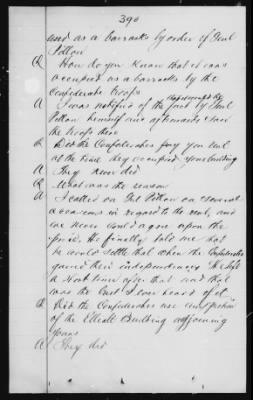 390
used as a barracks by order of Genl
Pillow
Q How do you know that it was
occupied as a barracks by the
Confederate troops
A I was notified of the fact by Genl
Pillow himself and afterwards I saw
the troops there
Q Did the Confederates pay you rent
at the time they occupied your building
A They never did
Q What was the reason
A I called on Genl Pillow on several
occasions in regard to the rent, and
we never could agree upon the
price. He finally told me that
he would settle that when the Confederates
gained their independence. He left
a short time after that and that
was the last I ever heard of it
Q Did the Confederates use any portion
of the Elliott Building adjoining
yours
A They did